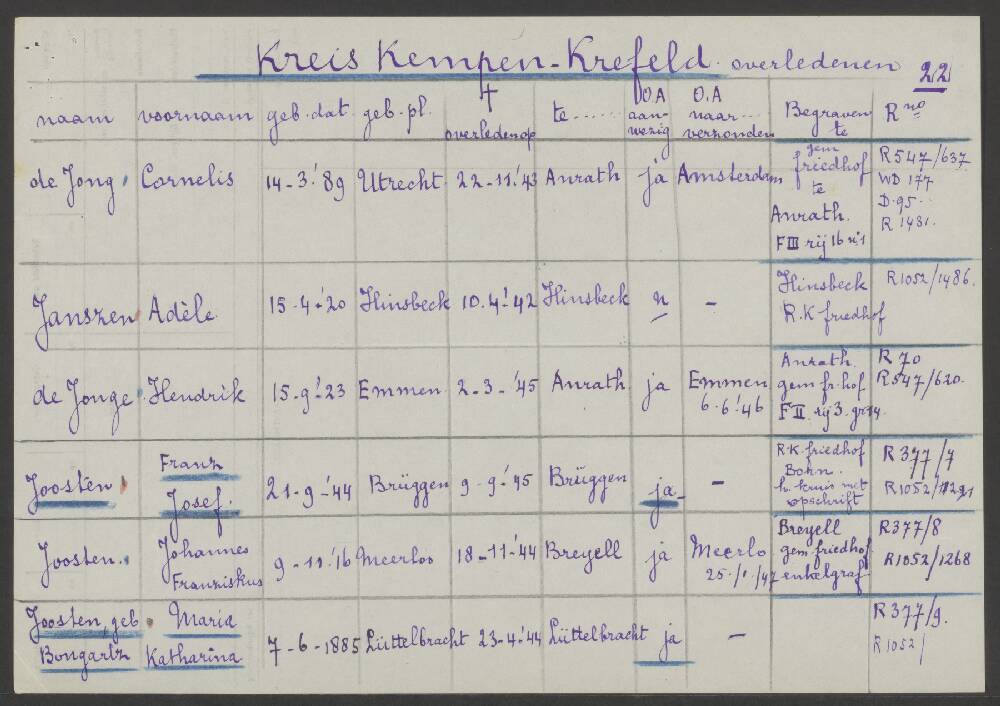 Kreis Kempen-Krefeld. overledenen 22
naam voornaam geb. dat. geb. pl. † overleden op te ...... O.A aan-wezig O.A naar... verzonden Begraven te R no
de Jong Cornelis 14-3-'89 Utrecht 22-11-'43 Anrath ja Amsterdam
gem
friedhof
te
Anrath.
F III rij 16 n:1
R 547/637
WD 177
D. 95.
R 1431.
Janszen Adèle 15-4-'20 Hinsbeck 10.4.'42 Hinsbeck n -
Hinsbeck
R.K friedhof
R1052/1486.
de Jonge Hendrik 15-9-'23 Emmen 2-3-'45 Anrath ja
Emmen
6.6.'46
Anrath.
gem fr.hof
F II rij 3. gr 14.
R 70
R547/620.
Joosten Franz
Josef. 21-9-'44 Brüggen 9-9-'45 Brüggen ja -
R.K. friedhof
Born.
h. kruis met
opschrift
R 377/7
R1052/1291
Joosten. Johannes
Franziskus 9-11-'16 Meerloo 18-11-'44 Breyell ja
Meerlo
25-/1-/47
Breyell
gem. friedhof
enkelgraf
R377/8
R1052/1268
Joosten, geb
Bongartz
Maria
Katharina 7-6-1885 Lüttelbracht 23-4-'44 Lüttelbracht ja -
R377/9.
R1052/